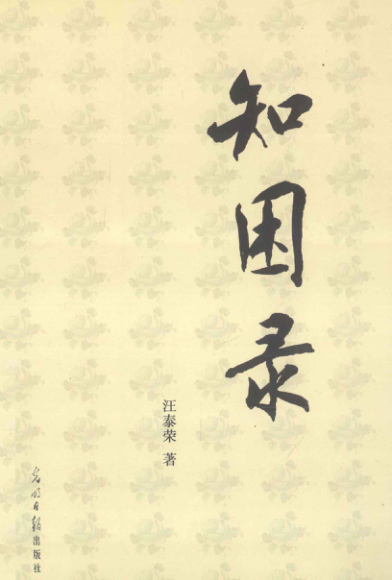 知困录
汪泰荣 著
光明日报出版社